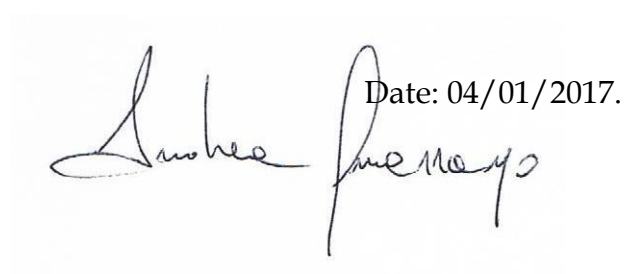 Date: 04/01/2017.
Andrea